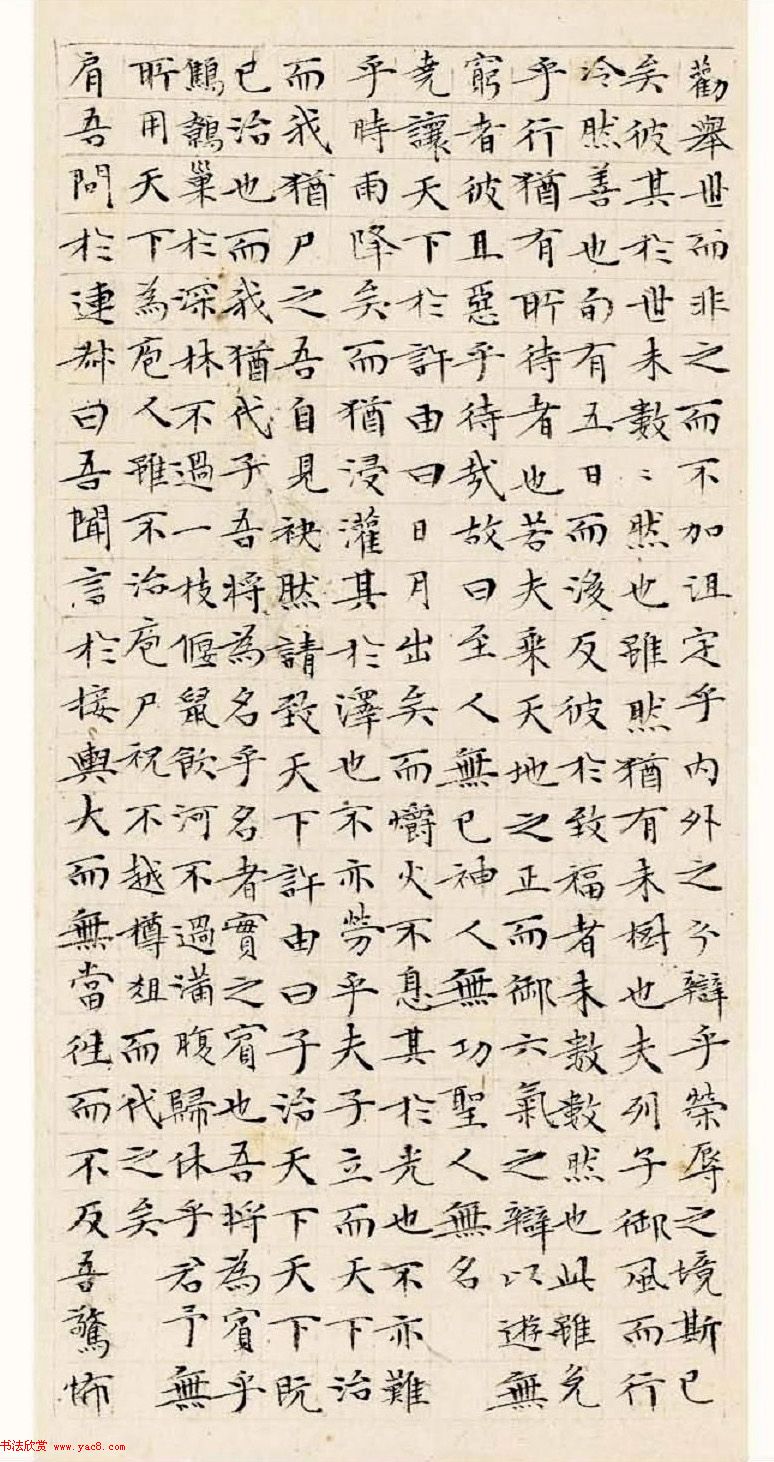 勸舉世而非之而不加沮定乎內外之分辯乎榮辱之境斯已
矣彼其於世未數〻然也雖然猶有未樹也夫列子御風而行
冷然善也旬有五日而後反彼於致福者未數數然也此雖免
乎行猶有所待者也若夫乘天地之正而御六氣之辯以遊無
窮者彼且惡乎待哉故曰至人無已神人無功聖人無名
堯讓天下於許由曰日月出矣而爝火不息其於光也不亦難
乎時雨降矣而猶浸灌其於澤也不亦勞乎夫子立而天下治
而我猶尸之吾自見缺然請致天下許由曰子治天下天下既
已治也而我猶代子吾將為名乎名者實之賓也吾將為賓乎
鷦鷯巢於深林不過一枝偃鼠飲河不過滿腹歸休乎君予無
所用天下為庖人雖不治庖尸祝不越樽俎而代之矣
肩吾問於連叔曰吾聞言於接輿大而無當往而不反吾驚怖
书法欣赏 www.yac8.com